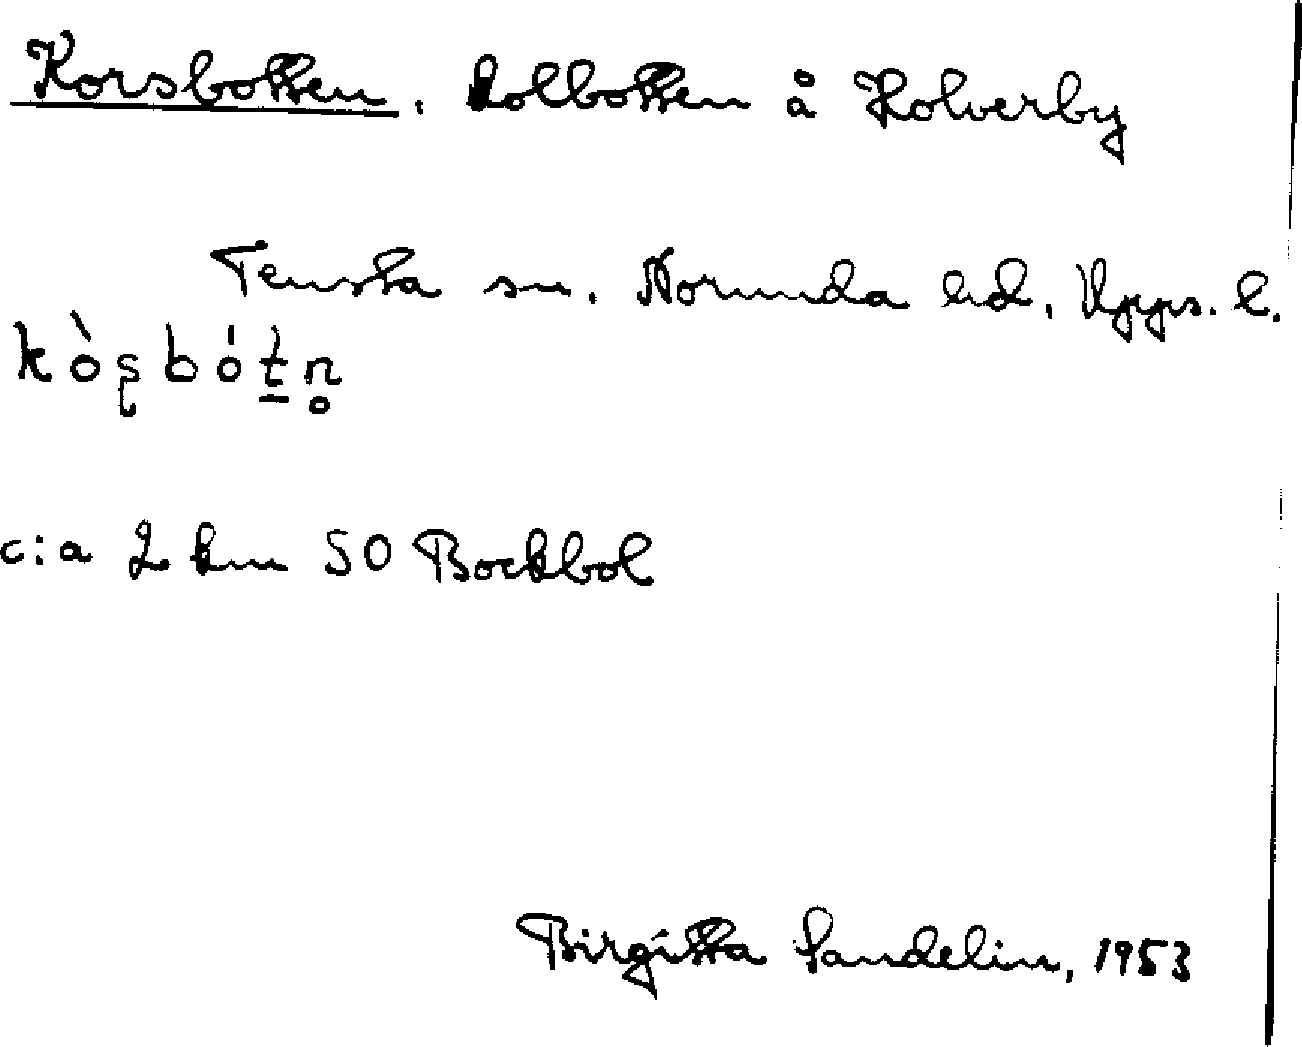 Korsbotten, kolbotten å Kolverby
Tensta sn. Norunda hd, Upps. l.
kòʂbót̲n̥
c:a 2 km SO Bockbol
Birgitta Sandelin, 1953